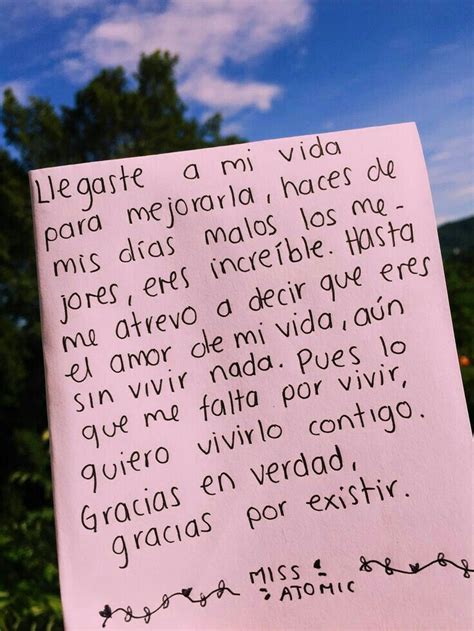 Llegaste a mi vida
para mejorarla, haces de
mis días malos los me-
jores, eres increíble. Hasta
me atrevo a decir que eres
el amor de mi vida, aún
sin vivir nada. Pues lo
que me falta por vivir,
quiero vivirlo contigo.
Gracias en verdad,
gracias por existir.
MISS
ATOMIC